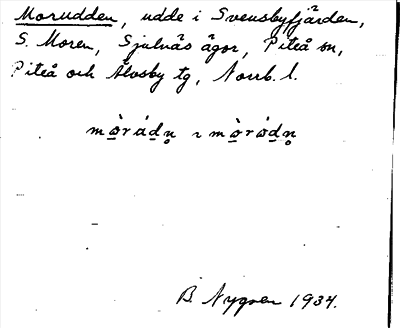 Morudden, udde i Svensbyfjärden,
S. Moren, Sjulnäs ägor, Piteå sn,
Piteå och Älvsby tg, Norrb. l.
B. Nygren 1934.